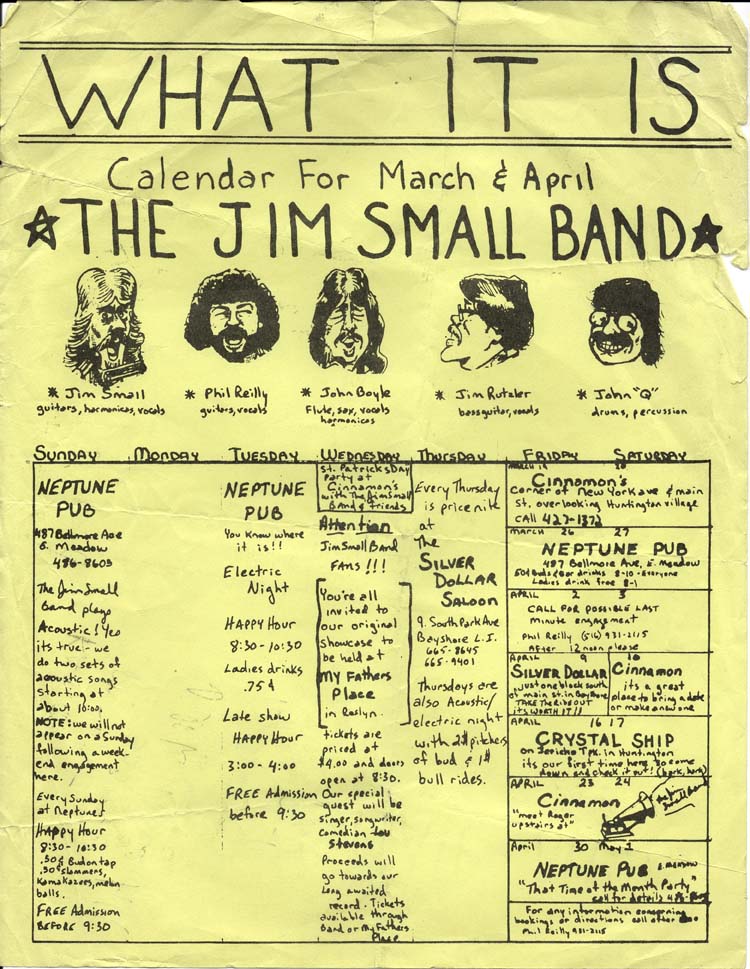 WHAT IT IS
Calendar For March & April
THE JIM SMALL BAND
* Jim Small
guitars, harmonicas, vocals
* Phil Reilly
guitars, vocals
* John Boyle
Flute, sax, vocals
harmonicas
* Jim Rutzler
bass guitar, vocals
* John "Q"
drums, percussion
SUNDAY MONDAY TUESDAY WEDNESDAY THURSDAY FRIDAY SATURDAY
NEPTUNE
PUB
487 Bellmore Ave
E. Meadow
486-8603
The Jim Small
Band plays
Acoustic! Yes
its true - we
do two sets of
acoustic songs
starting at
about 10:00.
NOTE: we will not
appear on a Sunday
following a week-
end engagement
here.
Every Sunday
at Neptunes
Happy Hour
8:30-10:30
.50¢ Bud on tap
.50¢ Slammers,
Kamakazees, melon
balls.
FREE Admission
BEFORE 9:30
NEPTUNE
PUB
You know where
it is!!
Electric
Night
HAPPY HOUR
8:30-10:30
Ladies drinks
.75¢
Late show
HAPPY HOUR
3:00-4:00
FREE Admission
before 9:30
St. Patricks Day
Party at
Cinnamon's
with The Jim Small
Band & friends
Attention
Jim Small Band
FANS!!!
You're all
invited to
our original
showcase to
be held at
My Fathers
Place
in Roslyn.
tickets are
priced at
$4.00 and doors
open at 8:30.
Our special
guest will be
singer, songwriter,
comedian Lou
Stevens
Proceeds will
go towards our
long awaited
record. Tickets
available through
Band or My Fathers
Place
Every Thursday
is price nite
at
The
SILVER
DOLLAR
SALOON
9. South Park Ave
Bayshore L.I.
665-8645
665-9401
Thursdays are
also Acoustic/
electric night
with 2$ pitchers
of bud & 1$
bull rides.
MARCH 19 20
Cinnamon's
corner of New York ave & main
St. overlooking Huntington village
CALL 427-1372
MARCH 26 27
NEPTUNE PUB
487 Bellmore Ave, E. Meadow
50¢ Buds & Bar drinks 8-10-Everyone
Ladies drink free 8-1
APRIL 2 3
CALL FOR POSSIBLE LAST
minute engagement
Phil Reilly (516) 931-2115
After 12 noon please
APRIL 9 10
SILVER DOLLAR
just one block south
of main st. in Bay Shore
TAKE THE RIDE OUT
its WORTH IT!!
Cinnamon
its a great
place to bring a date
or make a new one
APRIL 16 17
CRYSTAL SHIP
on Jericho Tpk. in Huntington
its our first time here so come
down and check it out! (bork, bork)
APRIL 23 24
Cinnamon
"meet Roger
upstairs at"
April 30 May 1
NEPTUNE PUB E. MEADOW
"That Time of the Month Party"
call for details
For any information concerning
bookings or directions call after
Phil Reilly 931-2115